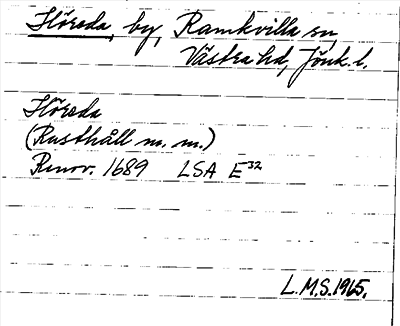 Höreda, by, Ramkvilla sn
Västra hd, Jönk. l.
Höreda
(Rusthåll m. m.)
Renov. 1689 LSA E³²
L.M.S. 1965.